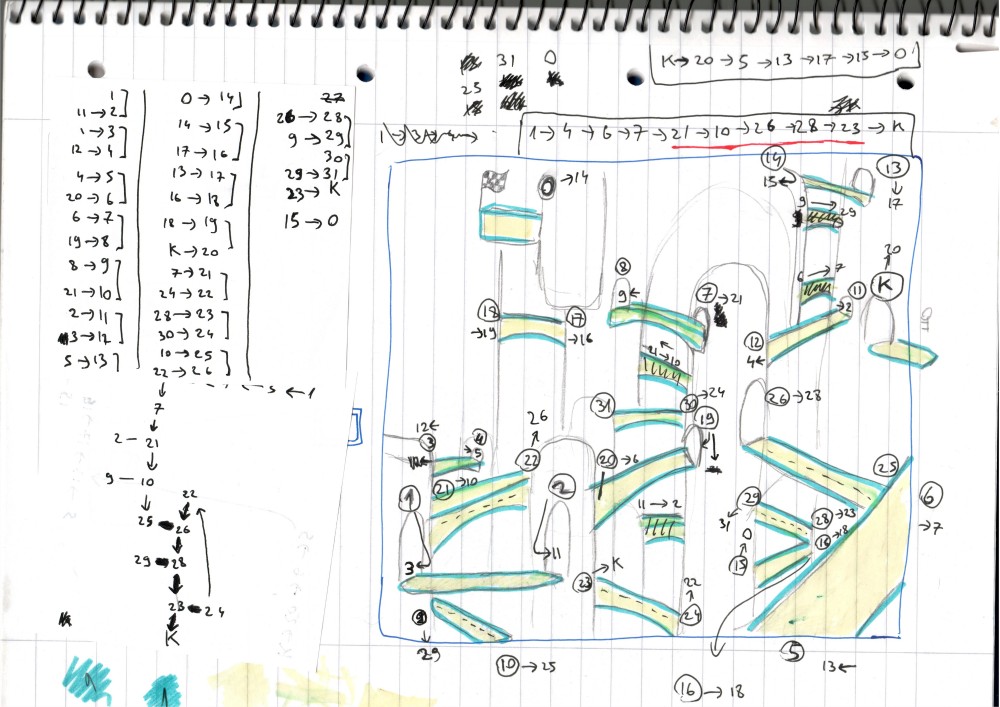 31 0
25
K→20→5→13→17→15→0
1→4→6→7→21→10→26→28→23→K
1]
11→2]
1→3]
12→4]
4→5]
20→6]
6→7]
19→8]
8→9]
21→10]
2→11]
13→12]
5→13]
0→14]
14→15]
17→16]
13→17]
16→18]
18→19]
K→20]
7→21]
24→22]
28→23]
30→24]
10→25]
22→26
27
26→28]
9→29]
30]
29→31]
23→K
15→0
5←1
7
2–21
9–10
25 26
22
29 28
23 24
K
0→14
14
15
13
17
9→29
6→7
20
K
8
9←
7→21
11
→2
12
4←
18
→19
17
→16
21→10
30→24
31
19
26→28
12←
3
4
5
26
22
21→10
20→6
1
3
2
11
11→2
25
29
31
28→23
16→18
0
15
6
→7
23→K
22
24
9
29
10→25
16→18
5
13←